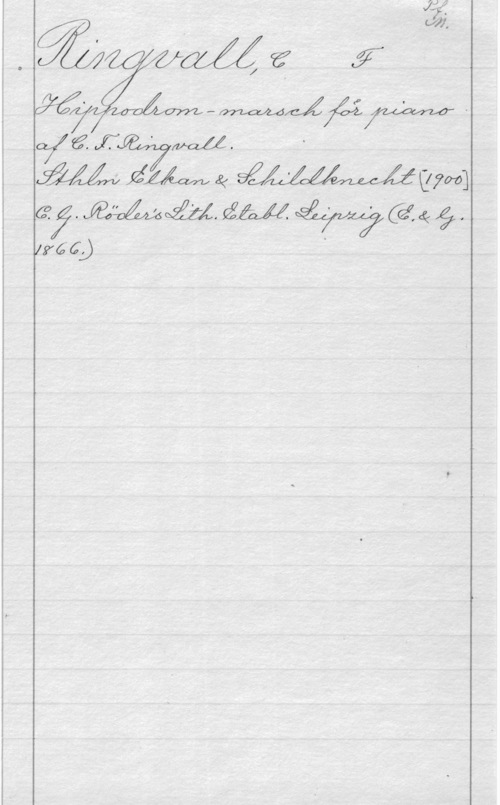 Pl.
In.
Ringvall, C F
Hippodrom-marsch för piano
af C. F. Ringvall.
Sthlm Elkan & Schildknecht [1900]
C. G. Röder's Lith. Etabl. Leipzig (E. & G.
1866.)